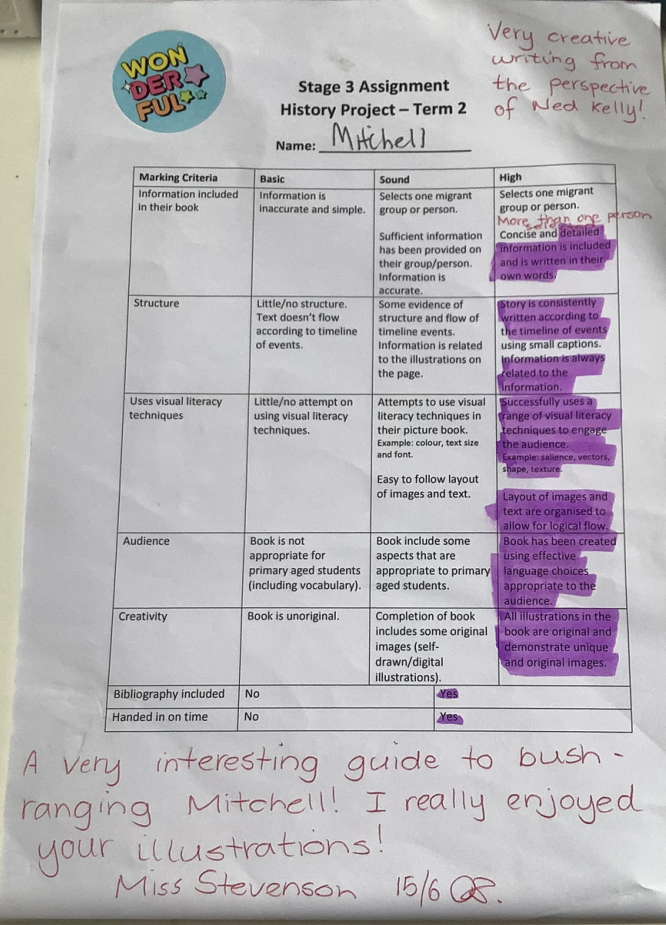 WON
DER
FUL
Very creative
writing from
the perspective
of Ned Kelly!
Stage 3 Assignment
History Project – Term 2
Name: Mitchell
Marking Criteria Basic Sound High
Information included
in their book
Information is
inaccurate and simple.
Selects one migrant
group or person.
Sufficient information
has been provided on
their group/person.
Information is
accurate.
Selects one migrant
group or person.
More than one person
Concise and detailed
information is included
and is written in their
own words.
Structure
Little/no structure.
Text doesn't flow
according to timeline
of events.
Some evidence of
structure and flow of
timeline events.
Information is related
to the illustrations on
the page.
Story is consistently
written according to
the timeline of events
using small captions.
Information is always
related to the
information.
Uses visual literacy
techniques
Little/no attempt on
using visual literacy
techniques.
Attempts to use visual
literacy techniques in
their picture book.
Example: colour, text size
and font.
Easy to follow layout
of images and text.
Successfully uses a
range of visual literacy
techniques to engage
the audience.
Example: salience, vectors,
shape, texture.
Layout of images and
text are organised to
allow for logical flow.
Audience
Book is not
appropriate for
primary aged students
(including vocabulary).
Book include some
aspects that are
appropriate to primary
aged students.
Book has been created
using effective
language choices
appropriate to the
audience.
Creativity
Book is unoriginal.
Completion of book
includes some original
images (self-
drawn/digital
illustrations).
All illustrations in the
book are original and
demonstrate unique
and original images.
Bibliography included No Yes
Handed in on time No Yes
A very interesting guide to bush-
ranging Mitchell! I really enjoyed
your illustrations!
Miss Stevenson 15/6